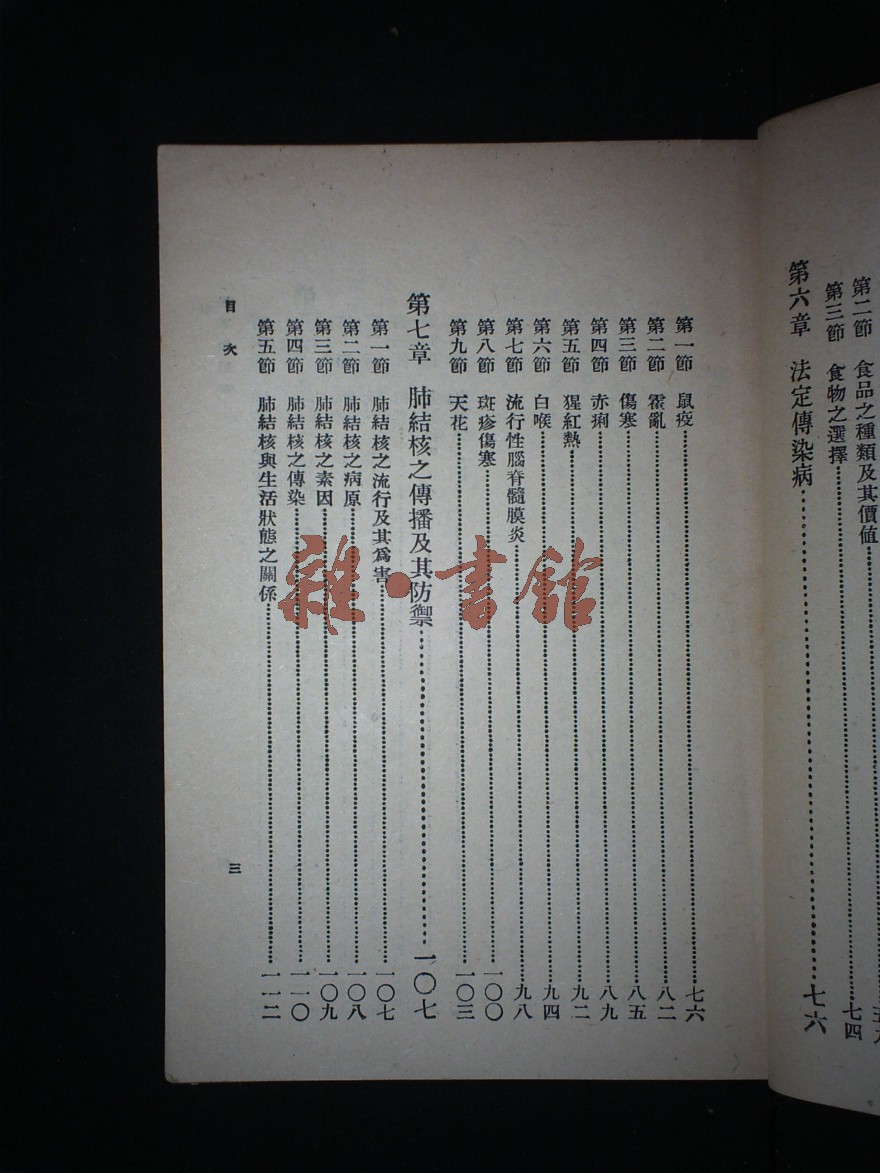 第二節　食品之種類及其價值
第三節　食物之選擇　七四
第六章　法定傳染病　七六
第一節　鼠疫　七六
第二節　霍亂　八二
第三節　傷寒　八五
第四節　赤痢　八九
第五節　猩紅熱　九二
第六節　白喉　九四
第七節　流行性腦脊髓膜炎　九八
第八節　斑疹傷寒　一〇〇
第九節　天花　一〇三
第七章　肺結核之傳播及其防禦　一〇七
第一節　肺結核之流行及其爲害　一〇七
第二節　肺結核之病原　一〇八
第三節　肺結核之素因　一〇九
第四節　肺結核之傳染　一一〇
第五節　肺結核與生活狀態之關係　一一二
目次
三
雜·書館